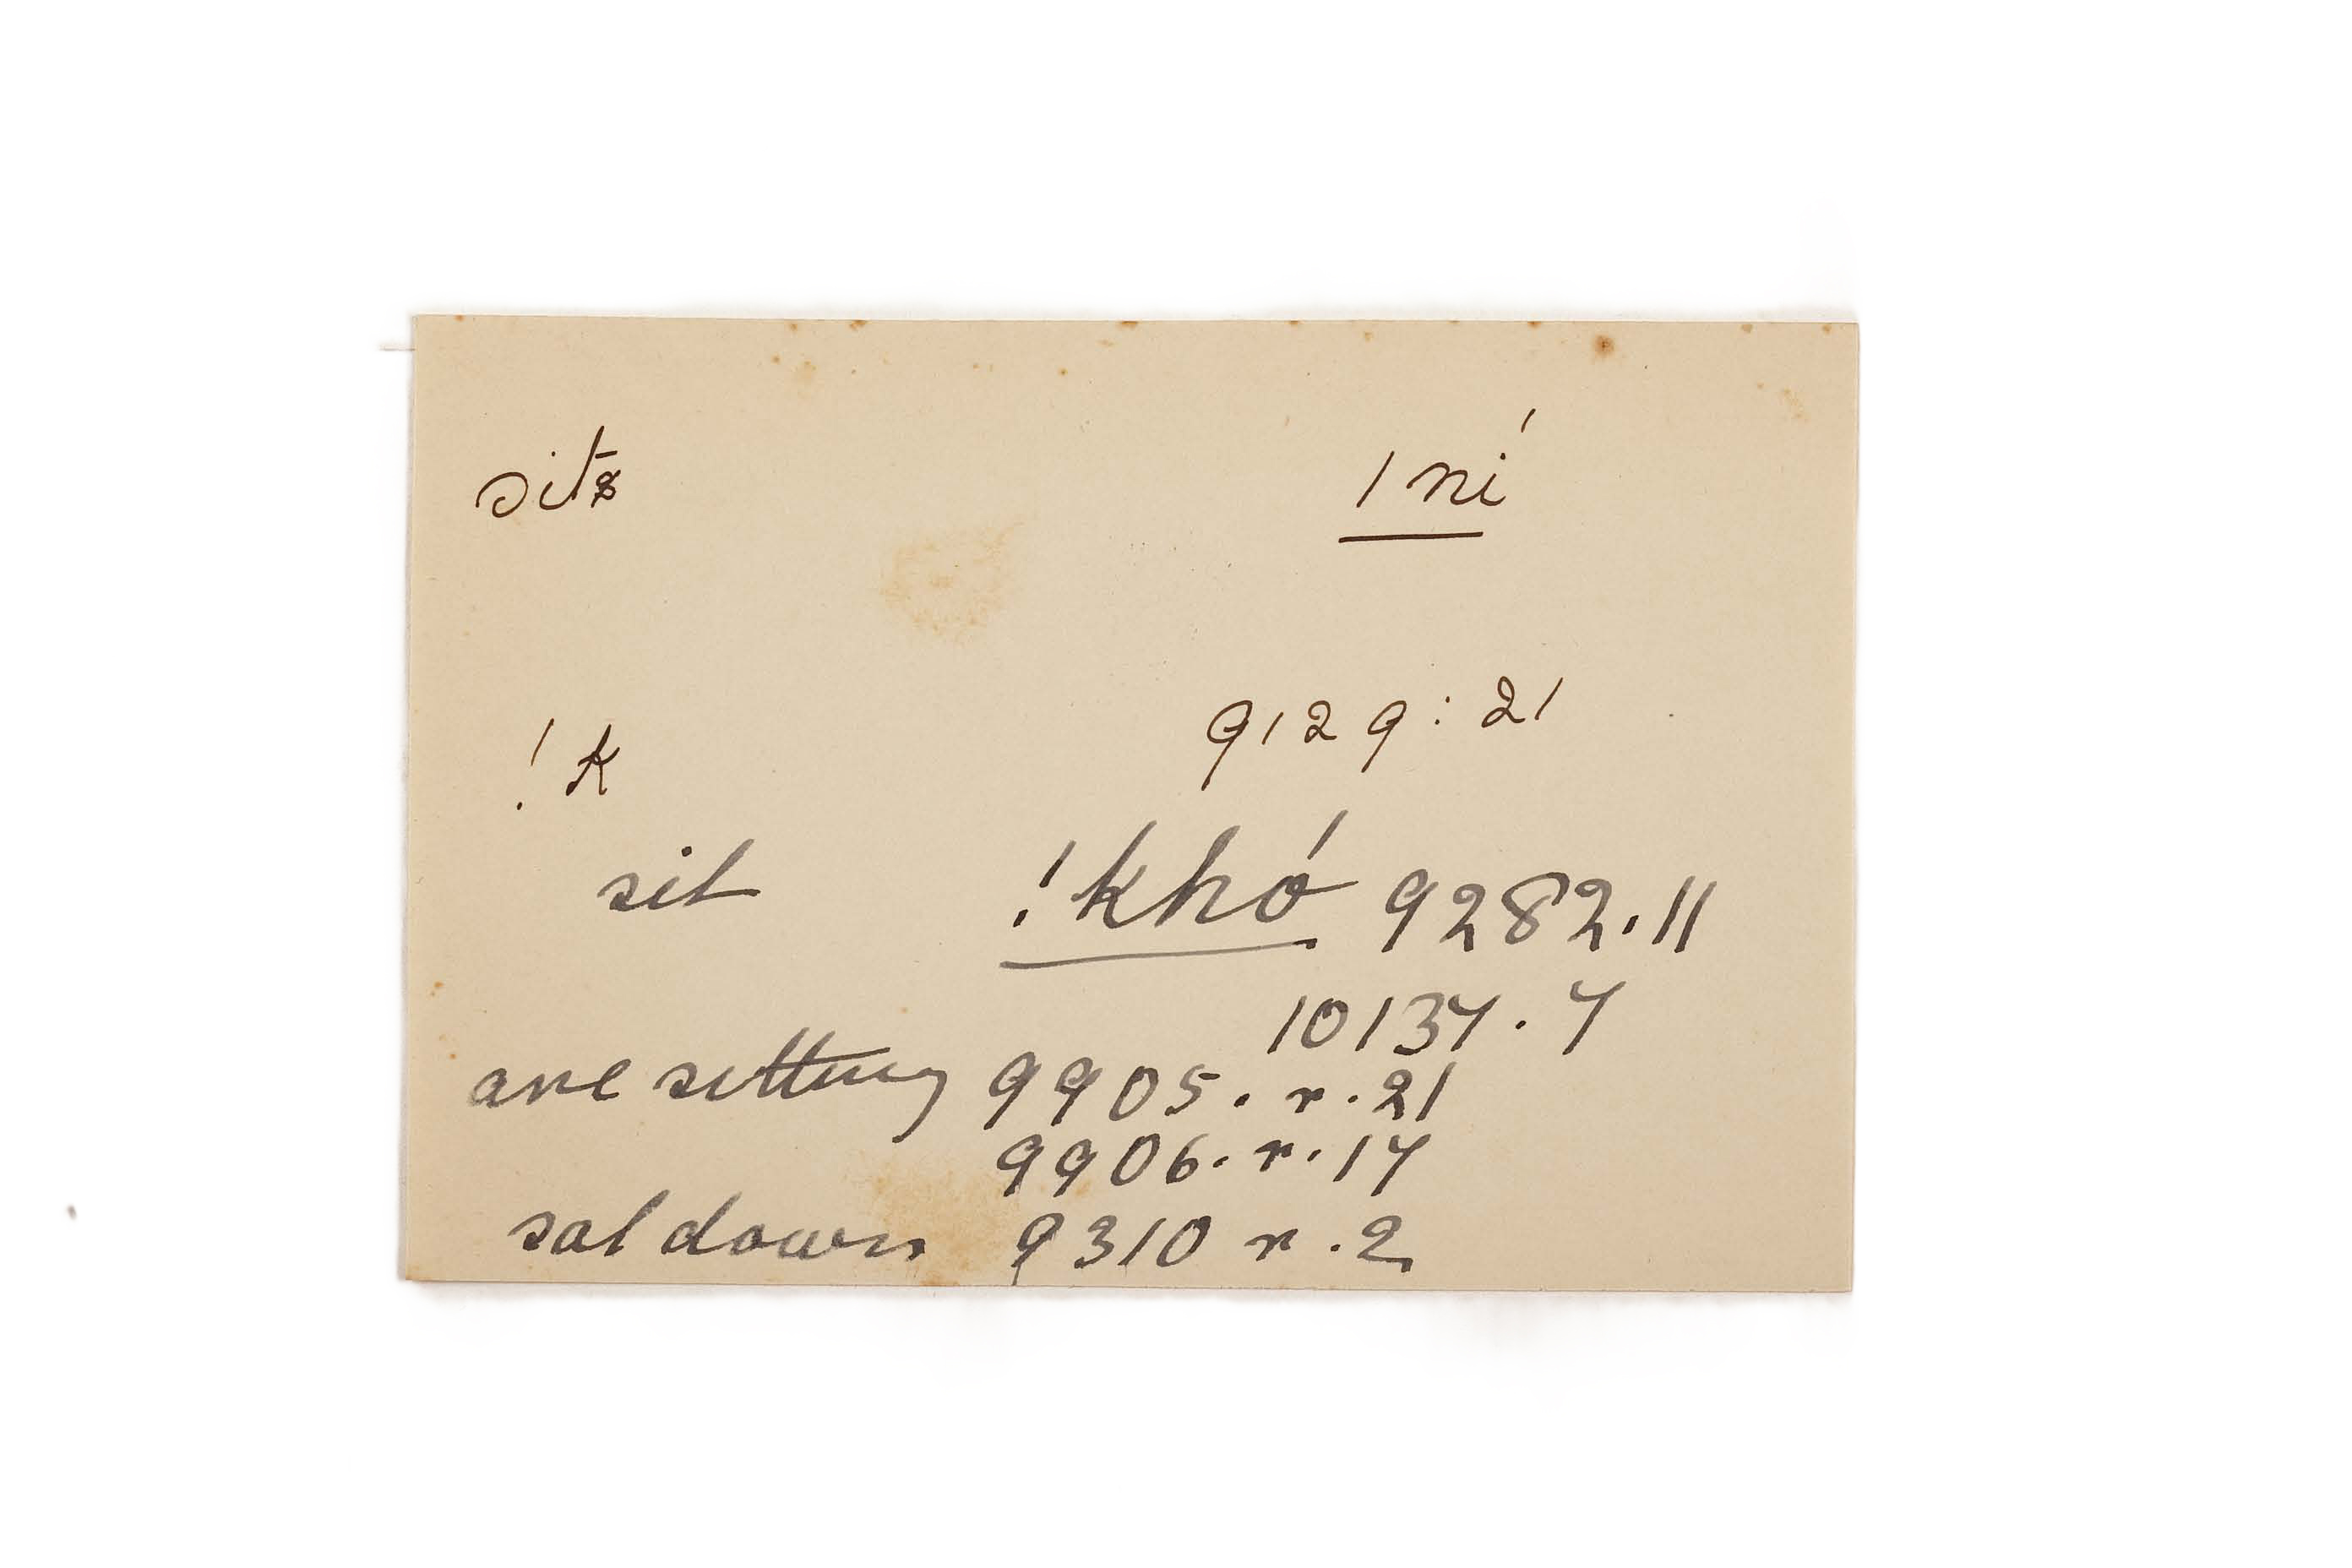 sits ǀ ní
9129 : 21
! k
sit !khó 9282.11
10137.7
are sitting 9905. r. 21
9906. r. 17
sat down 9310 r. 2